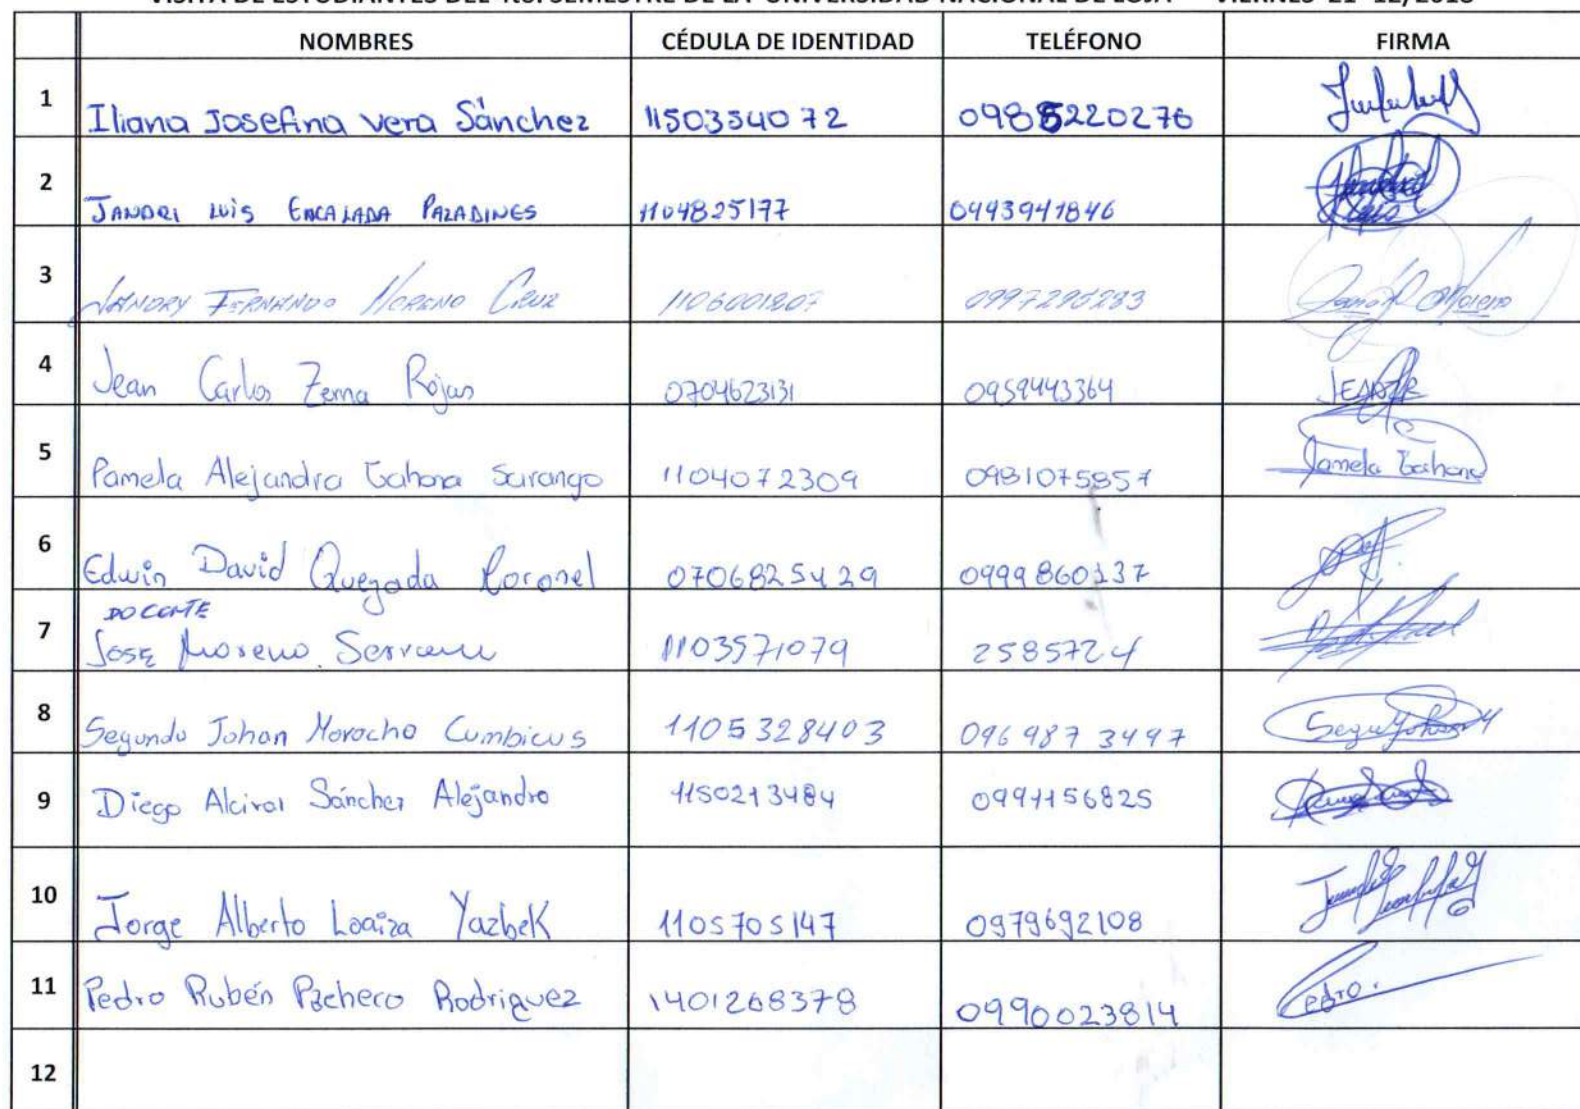 VISITA DE ESTUDIANTES DEL 4to. SEMESTRE DE LA UNIVERSIDAD NACIONAL DE LOJA VIERNES 21-12/2018
NOMBRES CÉDULA DE IDENTIDAD TELÉFONO FIRMA
1 Iliana Josefina vera Sánchez 1150354072 0985220276
2 JANDRI LUIS ENCALADA PALADINES 1104825177 0993941846
3 JANDRY FERNANDO MORENO CRUZ 1106001207 0997295283
4 Jean Carlos Zema Rojas 0704623131 0959443364 JEANZR
5 Pamela Alejandra Tahona Sarango 1104072309 0981075857 Pamela Tahona
6 Edwin David Quezada Coronel 0706825429 0999860137
DOCENTE
7 JOSE Moreno Serrano 1103571079 2585724
8 Segundo Johan Morocho Cumbicus 1105328403 0969873497
9 Diego Alcivar Sánchez Alejandro 1150213484 0991156825
10 Jorge Alberto Loaiza Yazbek 1105705147 0979692108
11 Pedro Rubén Pacheco Rodriguez 1401268378 0990023814 Pedro.
12